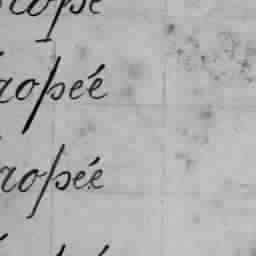 ropée
ropée
ropée